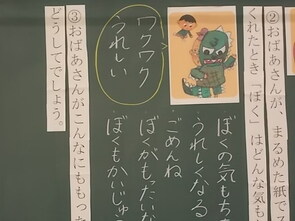 ②おばあさんが、まるめた紙で
くれたとき「ぼく」はどんな気も
ぼくの気もち
うれしくなる
ごめんね
ぼくがもったいな
ぼくもかいじゅう
ワクワク
うれしい
③おばあさんがこんなにももっ
どうしてでしょう。